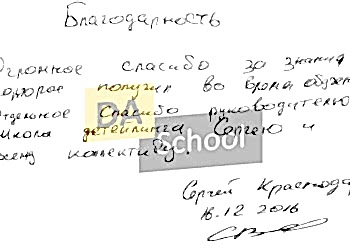 Благодарность
Огромное спасибо за знания
которые получил во время обучен
Отдельное спасибо руководителю
школы детейлинга Сергею и
всему коллективу.
DA
School
Сергей Краснодар
16.12 2016